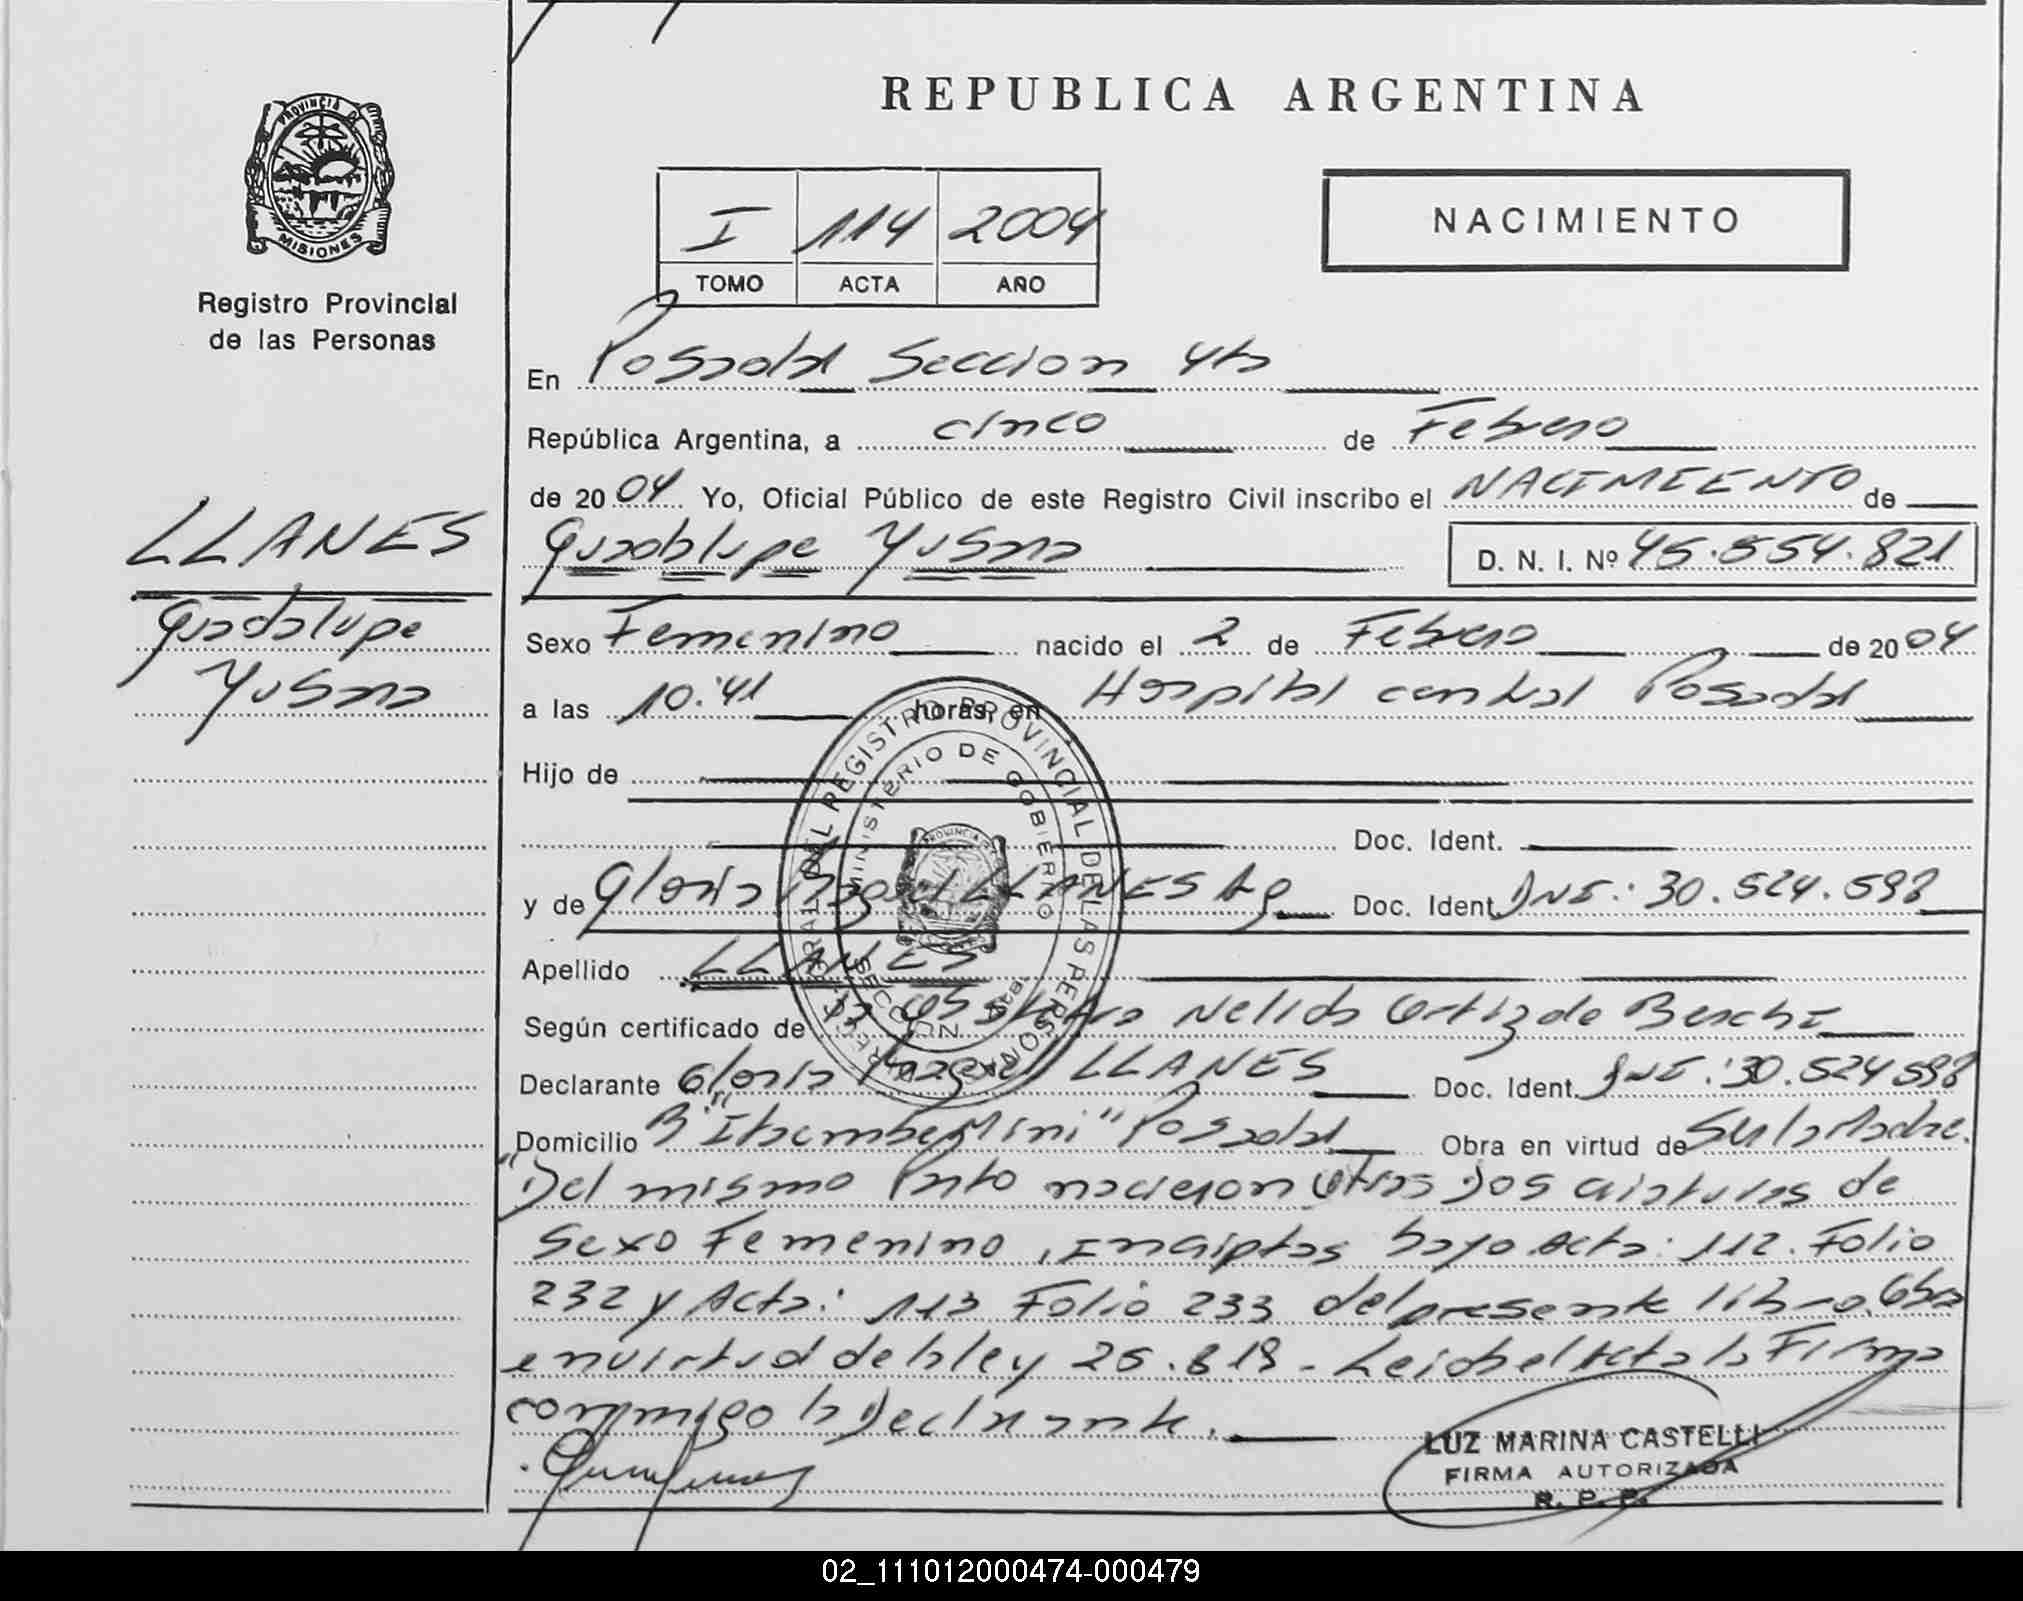 REPUBLICA ARGENTINA
PROVINCIA DE MISIONES
Registro Provincial
de las Personas
LLANES
Guadalupe
Yusara
I 114 2004
TOMO ACTA AÑO
NACIMIENTO
En Posadas Seccion 4ta
República Argentina, a cinco de Febrero
de 2004 Yo, Oficial Público de este Registro Civil inscribo el NACIMIENTO de
Guadalupe Yusara D. N. I. Nº 45.554.821
Sexo Femenino nacido el 2 de Febrero de 2004
a las 10:41 horas, en Hospital central Posadas
Hijo de
Doc. Ident.
y de Gloria LLANES Ag Doc. Ident. DNI: 30.524.598
Apellido LLANES
Según certificado de la Obstetra Nelida Ortiz de
Declarante Gloria LLANES Doc. Ident. DNI: 30.524598
Domicilio B "Itaembe Mini" Posadas Obra en virtud de Ser la Madre.
"Del mismo Parto nacieron Otras Dos criaturas de
Sexo Femenino, Inscriptas bajo Acta: 112. Folio
232 y Acta: 113 Folio 233 del presente libro. Obra
en virtud de la ley 25.819 - Leida el Acta la Firma
conmigo la Declarante.
LUZ MARINA CASTELLI
FIRMA AUTORIZADA
R. P. P.
REGISTRO PROVINCIAL DE LAS PERSONAS
MINISTERIO DE GOBIERNO
SECCION 4ta.
02_111012000474-000479